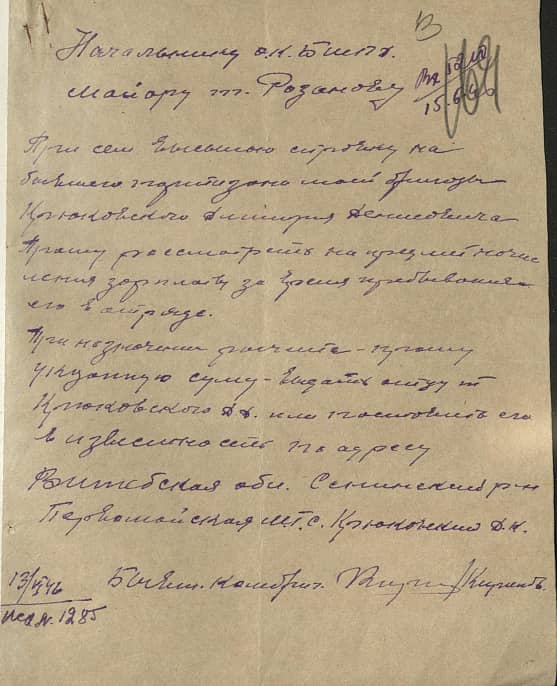 В
Начальнику о.к. БШПД.
майору т. Розанову
Вх 1280
15.6.46
При сем высылаю справку на
бывшего партизана моей бригады
Крюковского Дмитрия Денисовича
Прошу рассмотреть на предмет начис
ления зарплаты за время пребывания
его в отряде.
При назначении расчета - прошу
указанную сумму - выдать отцу т
Крюковского Д. или поставить его
в известность по адресу
Витебская обл. Сенинский р-н
Первомайская М.Т.С. Крюковский Д.К.
13/VI 46
Бывш. Комбриг.
исх №. 1285